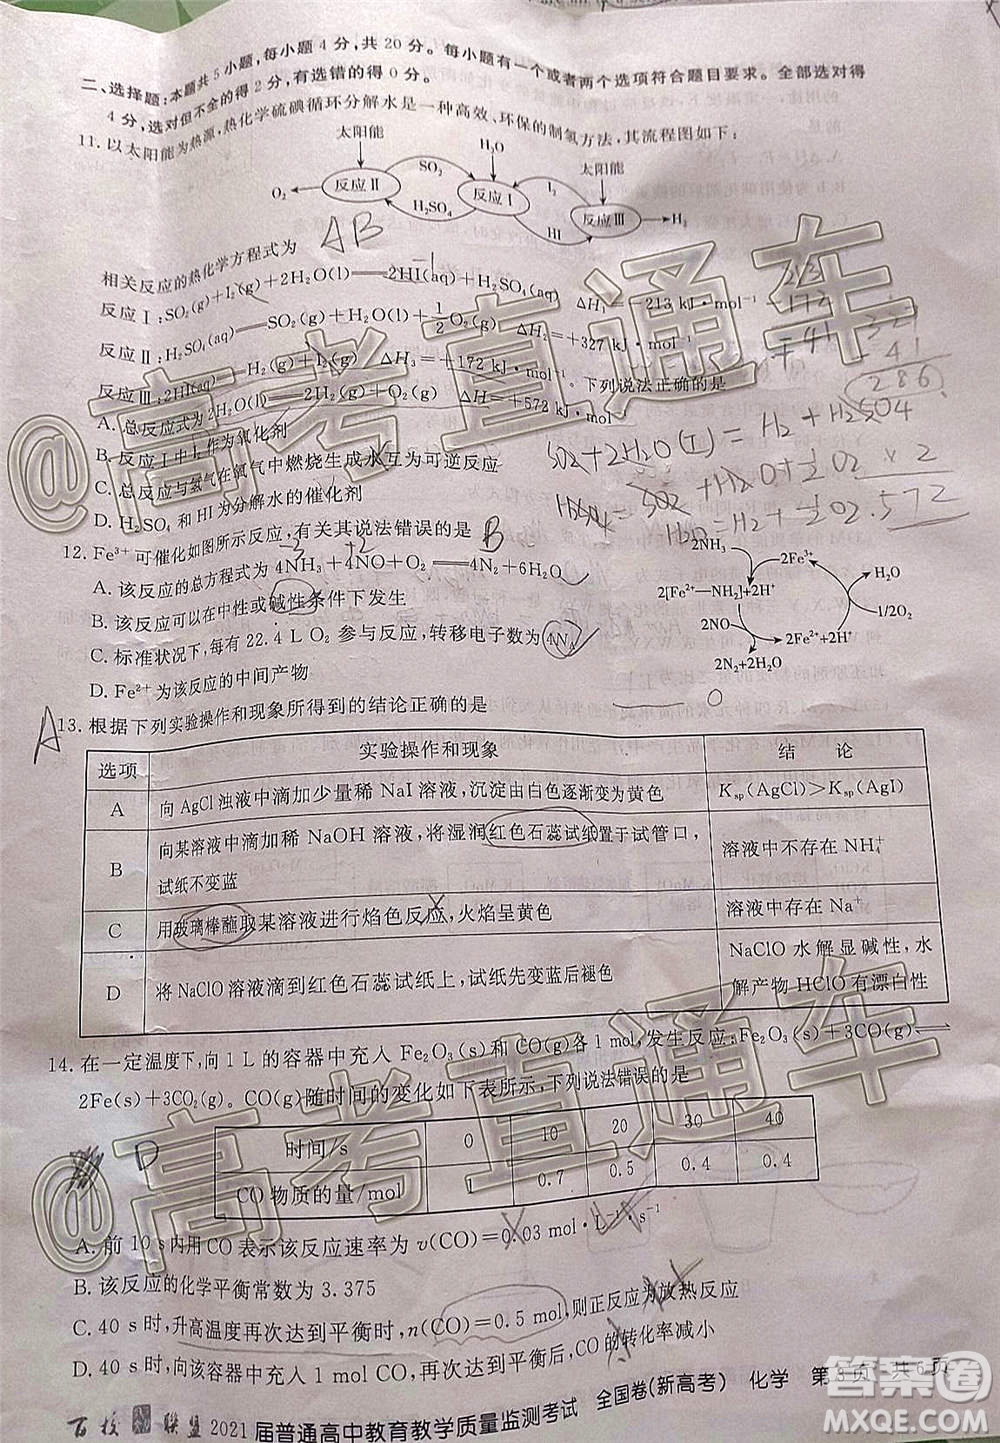 二、选择题：本题共 5 小题，每小题 4 分，共 20 分。每小题有一个或者两个选项符合题目要求。全部选对得
4 分，选对但不全的得 2 分，有选错的得 0 分。
11. 以太阳能为热源，热化学硫碘循环分解水是一种高效、环保的制氢方法，其流程图如下：
太阳能 SO₂ H₂O 太阳能
O₂ 反应Ⅱ 反应Ⅰ I₂ 反应Ⅲ H₂
H₂SO₄ HI
AB
相关反应的热化学方程式为
反应Ⅰ：SO₂(g)+I₂(g)+2H₂O(l)══2HI(aq)+H₂SO₄(aq) ΔH₁=−213 kJ·mol⁻¹
反应Ⅱ：H₂SO₄(aq)══SO₂(g)+H₂O(l)+1/2O₂(g) ΔH₂=+327 kJ·mol⁻¹
反应Ⅲ：2HI(aq)══H₂(g)+I₂(g) +172 kJ·mol⁻¹ 下列说法正确的是
A. 总反应式为2H₂O(l)══2H₂(g)+O₂(g) ΔH=+572 kJ·mol⁻¹
B. 反应Ⅰ中I₂作为氧化剂
C. 总反应与氢气在氧气中燃烧生成水互为可逆反应
D. H₂SO₄ 和 HI 为分解水的催化剂
286
SO₂+2H₂O(I)=H₂+H₂SO4
572
12. Fe³⁺ 可催化如图所示反应，有关其说法错误的是 B
A. 该反应的总方程式为 4NH₃+4NO+O₂══4N₂+6H₂O
B. 该反应可以在中性或碱性条件下发生
C. 标准状况下，每有 22.4 L O₂ 参与反应，转移电子数为 4N_A
D. Fe²⁺ 为该反应的中间产物
2NH₃ 2Fe³⁺ H₂O
2[Fe²⁺—NH₂]+2H⁺
2NO 1/2O₂
2Fe²⁺+2H⁺
2N₂+2H₂O
A
13. 根据下列实验操作和现象所得到的结论正确的是
选项 实验操作和现象 结 论
A 向 AgCl 浊液中滴加少量稀 NaI 溶液，沉淀由白色逐渐变为黄色 Ksp(AgCl)>Ksp(AgI)
B 向某溶液中滴加稀 NaOH 溶液，将湿润红色石蕊试纸置于试管口，
试纸不变蓝 溶液中不存在 NH₄⁺
C 用玻璃棒蘸取某溶液进行焰色反应，火焰呈黄色 溶液中存在 Na⁺
D 将 NaClO 溶液滴到红色石蕊试纸上，试纸先变蓝后褪色 NaClO 水解显碱性，水
解产物 HClO 有漂白性
14. 在一定温度下，向 1 L 的容器中充入 Fe₂O₃(s)和 CO(g)各 1 mol，发生反应：Fe₂O₃(s)+3CO(g)⇌
2Fe(s)+3CO₂(g)。CO(g)随时间的变化如下表所示，下列说法错误的是
D
时间/s 0 10 20 30 40
CO 物质的量/mol 1 0.7 0.5 0.4 0.4
A. 前 10 s 内用 CO 表示该反应速率为 v(CO)=0.03 mol·L⁻¹·s⁻¹
B. 该反应的化学平衡常数为 3.375
C. 40 s 时，升高温度再次达到平衡时，n(CO)=0.5 mol，则正反应为放热反应
D. 40 s 时，向该容器中充入 1 mol CO，再次达到平衡后，CO 的转化率减小
百校 联盟 2021 届普通高中教育教学质量监测考试 全国卷（新高考） 化学 第 3 页 共 6 页
@高考直通车
@高考直通车
答案圈
MXQE.COM